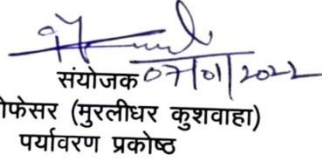 संयोजक 07/01/2022
ोफेसर (मुरलीधर कुशवाहा)
पर्यावरण प्रकोष्ठ